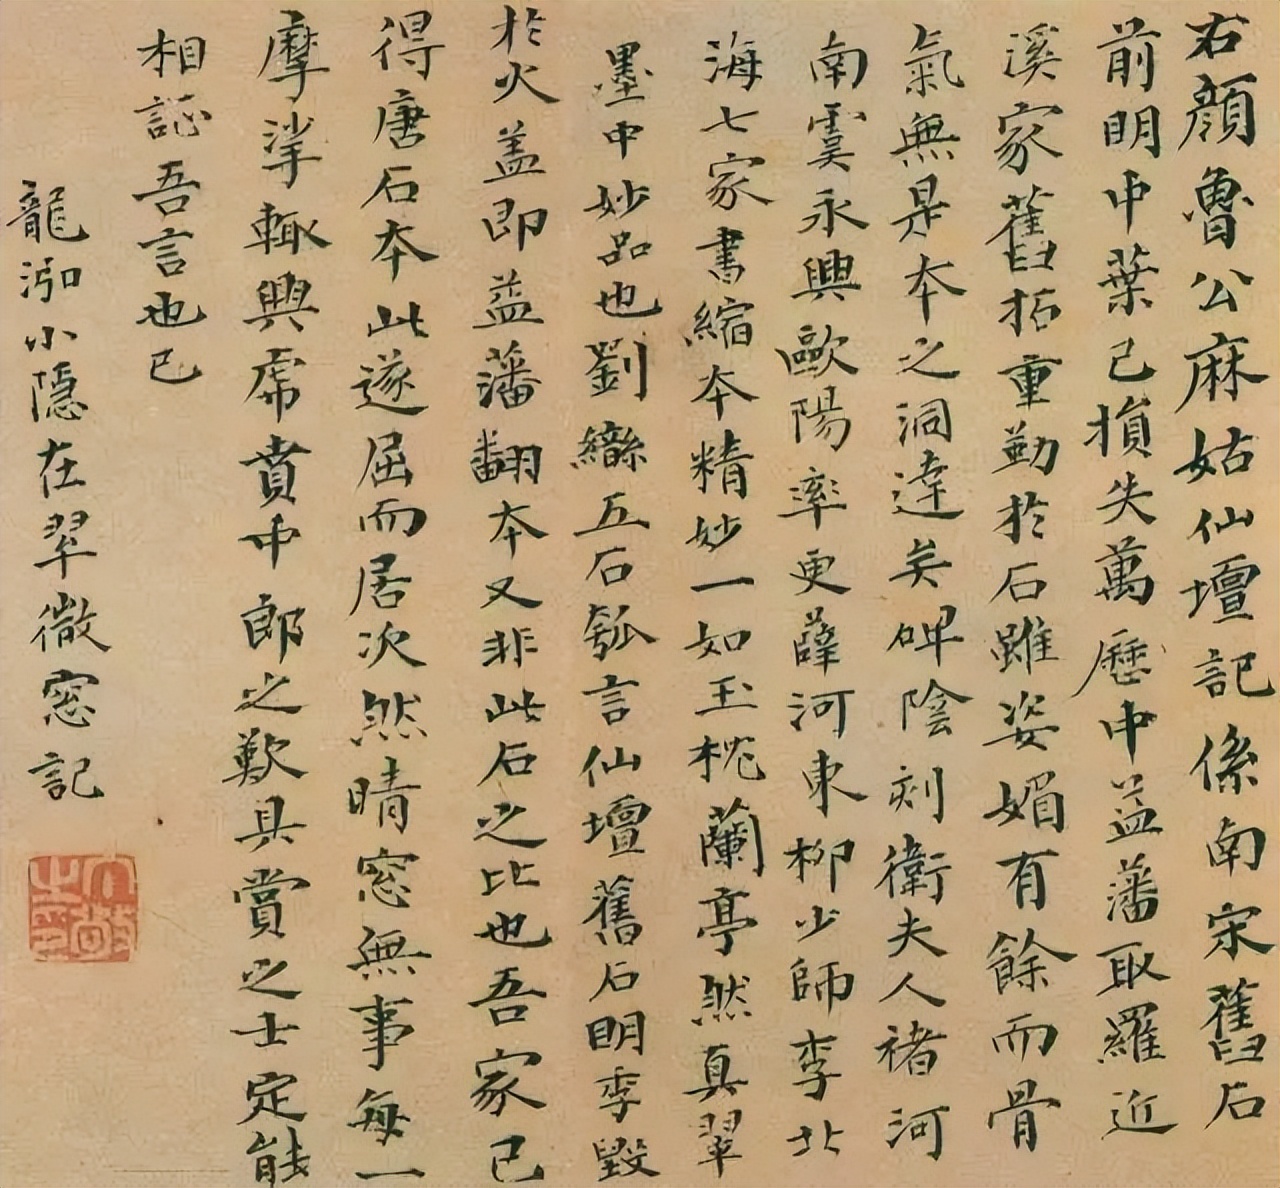 右顏魯公麻姑仙壇記係南宋舊石
前明中葉已損失萬歷中益藩取羅近
溪家舊拓重勒於石雖姿媚有餘而骨
氣無是本之洞達矣碑陰刻衛夫人褚河
南虞永興歐陽率更薛河東柳少師李北
海七家書縮本精妙一如玉枕蘭亭然真翠
墨中妙品也劉䜌五石瓠言仙壇舊石明季毀
於火蓋即益藩翻本又非此石之比也吾家已
得唐石本此遂屈而居次然晴窓無事每一
摩挲輒興虎賁中郎之歎具賞之士定能
相證吾言也已
龍泓小隱在翠微窓記